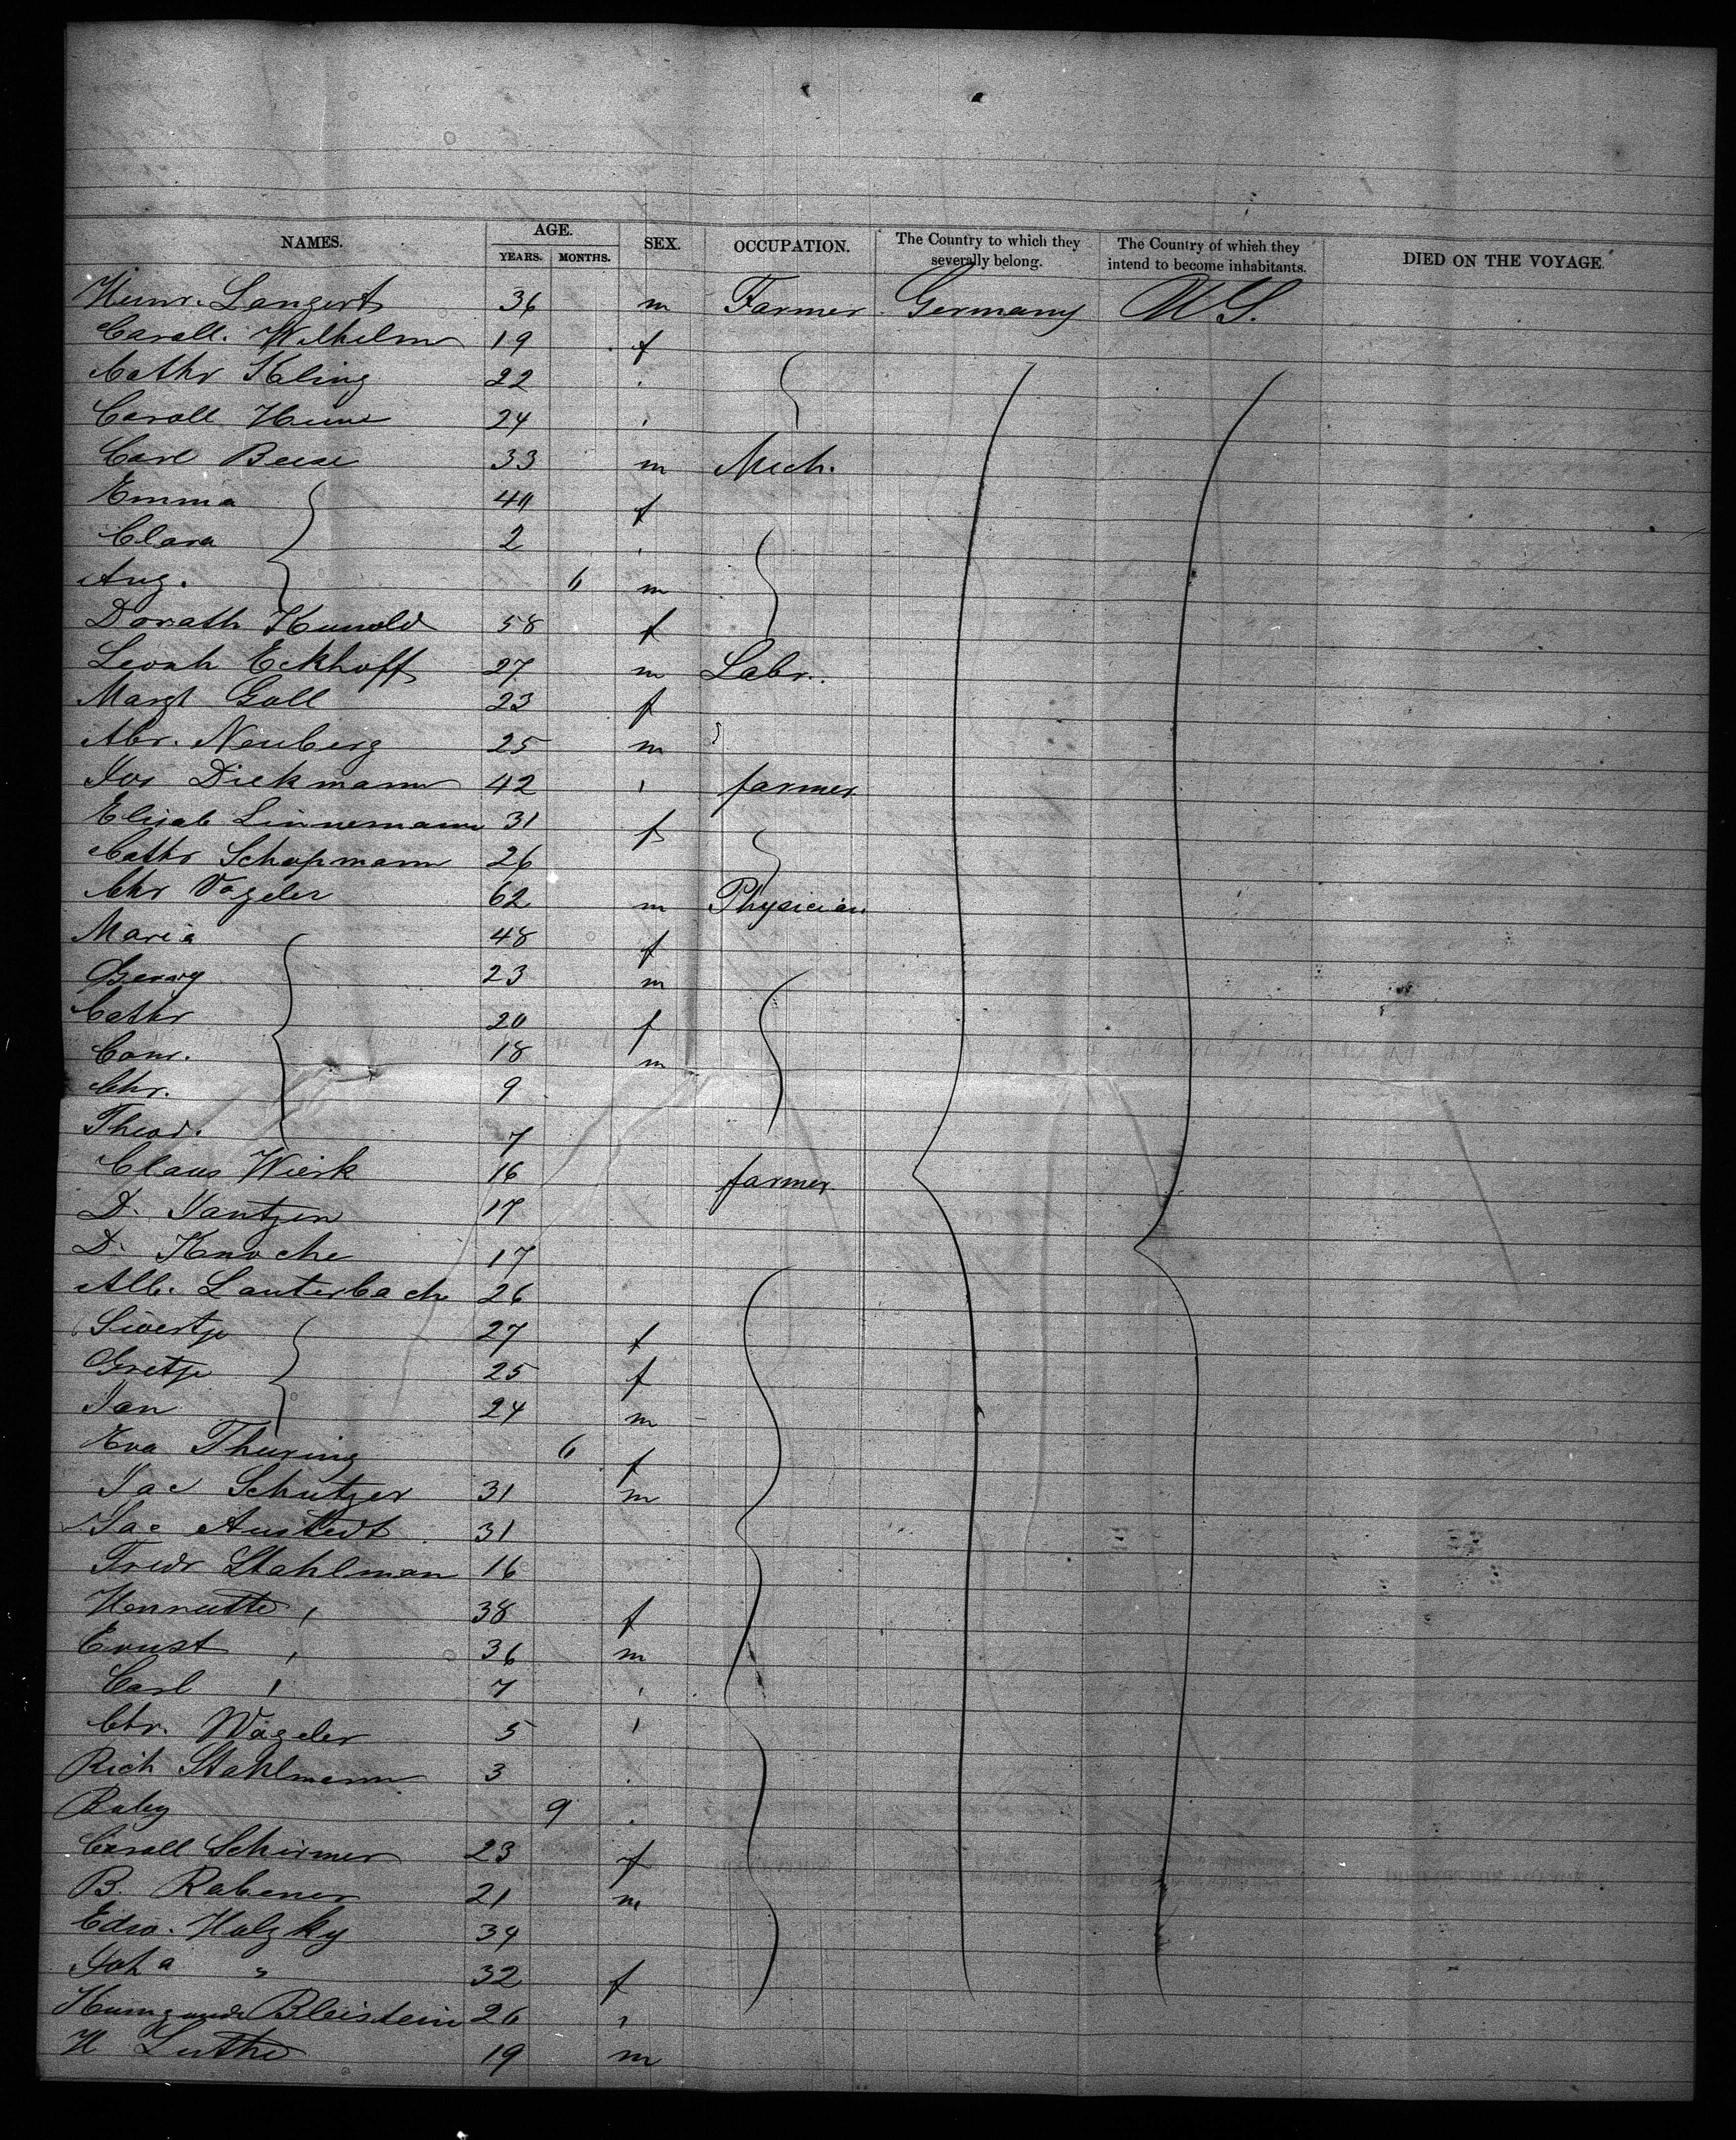 NAMES. AGE. SEX. OCCUPATION. The Country to which they severally belong. The Country of which they intend to become inhabitants. DIED ON THE VOYAGE.
YEARS. MONTHS.
Heinr. Langert 36 m Farmer Germany U S.
Caroll. Wilhelm 19 f
Cathr Kling 22
Caroll 24
Carl Beese 33 m Mech.
Emma 44 f
Clara 2
Aug. 6 m
Dorath Kunold 58 f
Leonh Eckhoff 27 m Labr.
Margt Goll 23 f
Abr. Neuberg 25 m
Jos Diekmann 42 farmer
Elisab Linnemann 31 f
Cathr Schapmann 26
Chr Vägeler 62 m Physician
Maria 48 f
Georg 23 m
Cathr 20 f
Conr. 18 m
Chr. 9
Theod. 7
Claus Wierk 16 farmer
D. Jantzen 17
D. Knoche 17
Alb. Lauterbach 26
Siwertje 27 f
Gretje 25 f
Jan 24 m
Eva Thuring 6 f
Jac Schutzer 31 m
Jac Austedt 31
Fredr Stahlman 16
Henriette " 38 f
Ernst " 36 m
Carl " 7
Chr. Wägeler 5
Rich Stahlmann 3
Baby 9
Caroll Schirmer 23 f
B. Rabener 21 m
Edw. Holzky 34
Joha " 32 f
Bleistein 26
H Luthe 19 m